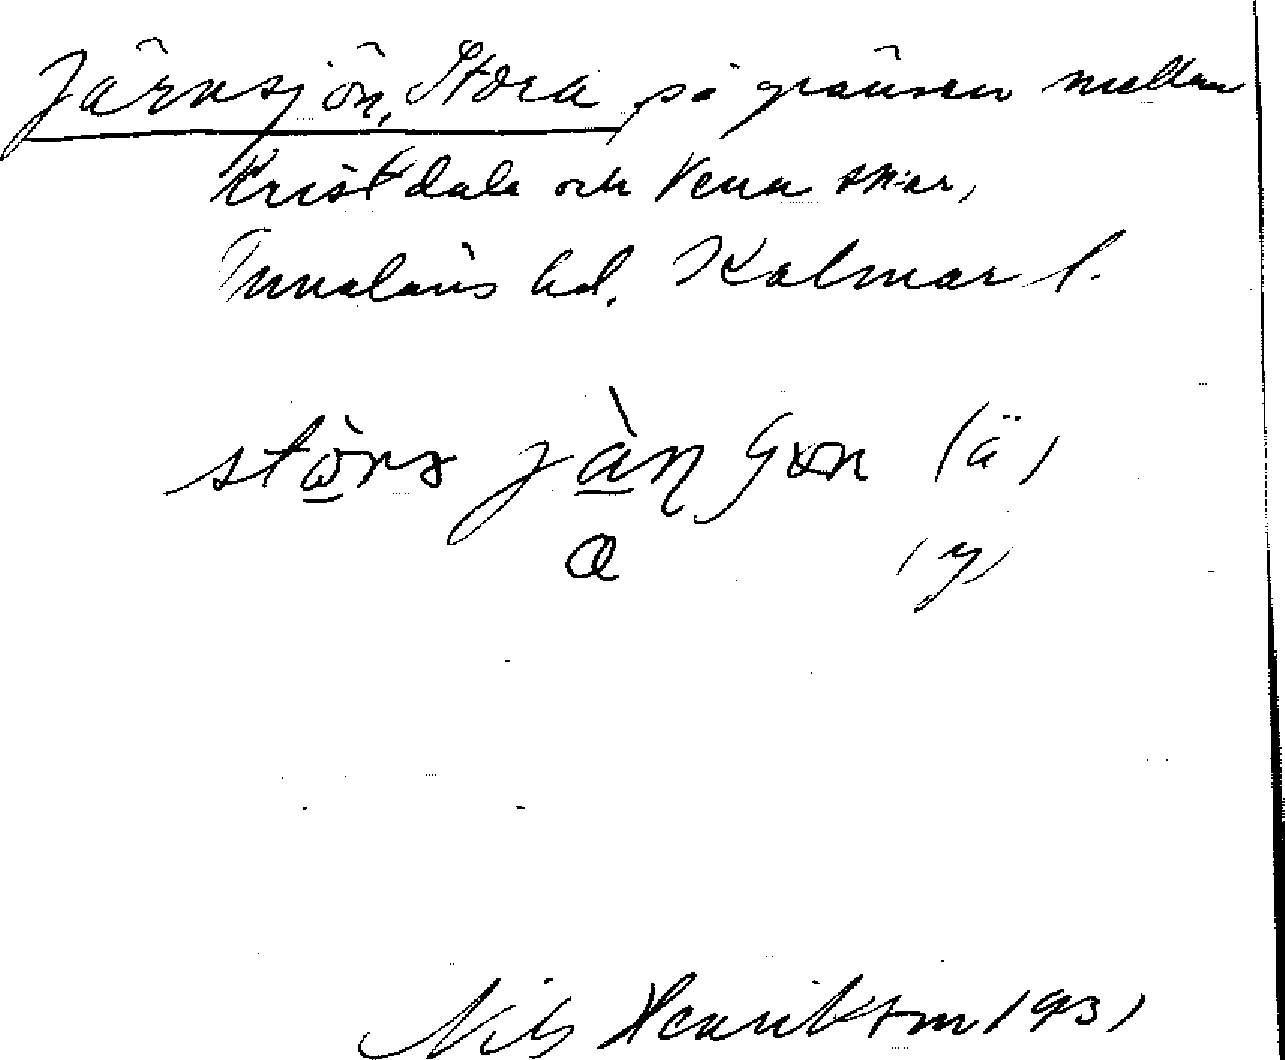 Järnsjön, Stora på gränsen mellan
Kristdala och Vena snar,
Tunaläns hd. Kalmar l.
störa jàn sjön (ä)
a (y)
Nils Henrikson 1931